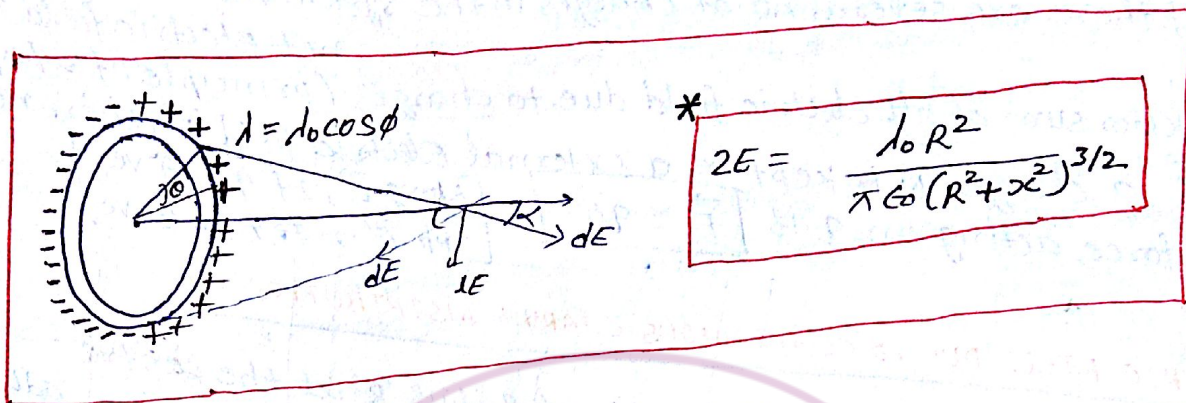 λ = λ₀ cosϕ
θ
α
dE
dE
dE
*
2E = λ₀ R² / π ϵ₀ (R² + x²)^3/2